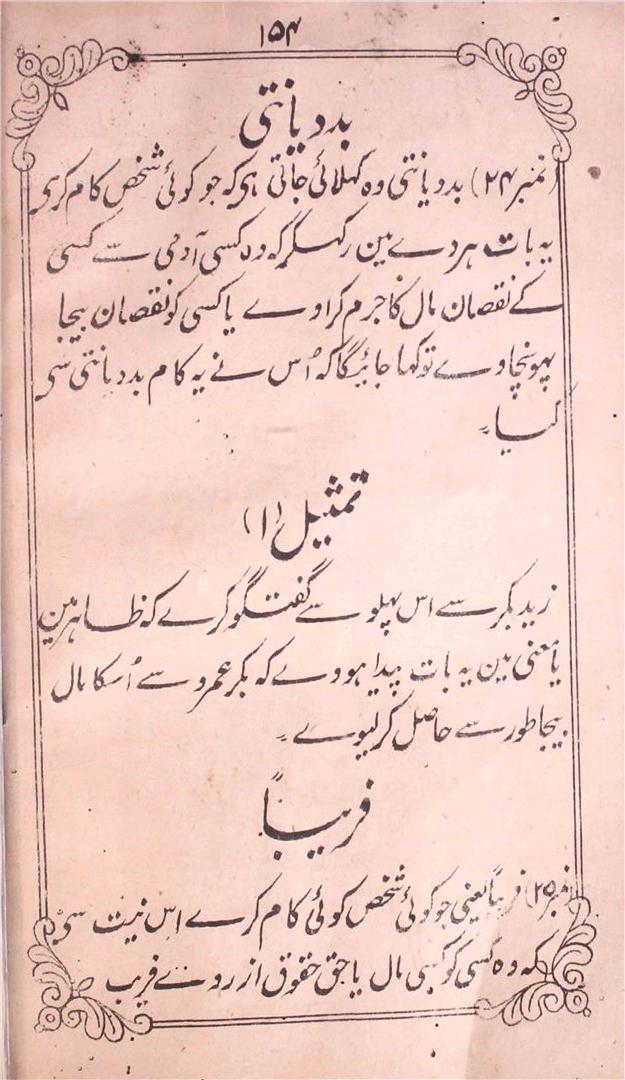 ۱۵۴
بددیانتی
(نمبر ۲۴) بددیانتی وہ کہلائی جاتی ہی کہ جو کوئی شخص کام کری
یہ بات ہردے مین رکہکر کہ وہ کسی آدمی سے کسی
کے نقصان مال کا جرم کراوے یا کسی کو نقصان بیجا
پہونچاوے تو کہا جائیگا کہ اُس نے یہ کام بددیانتی سی
کیا۔
تمثیل (۱)
زید بکر سے اس پہلو سے گفتگو کرے کہ ظاہر مین
یا معنی مین یہ بات پیدا ہووے کہ بکر عمرو سے اُسکا مال
بیجا طور سے حاصل کر لیوے۔
فریباً
(نمبر ۲۵) فریباً یعنی جو کوئی شخص کوئی کام کرے اس نیت سی
کہ وہ کسی کو کسی مال یا حق حقوق از روے فریب